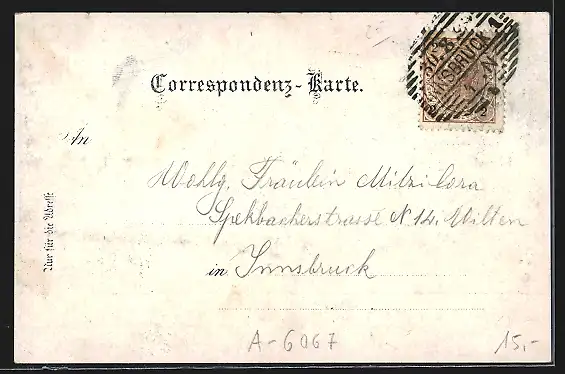 25
Correspondenz-Karte.
INNSBRUCK 1
2
An
Wohlg. Fräulein Mitzi Cora
Speckbacherstrasse N 14. Wilten
in Innsbruck
Nur für die Adresse
A-6067
15,-